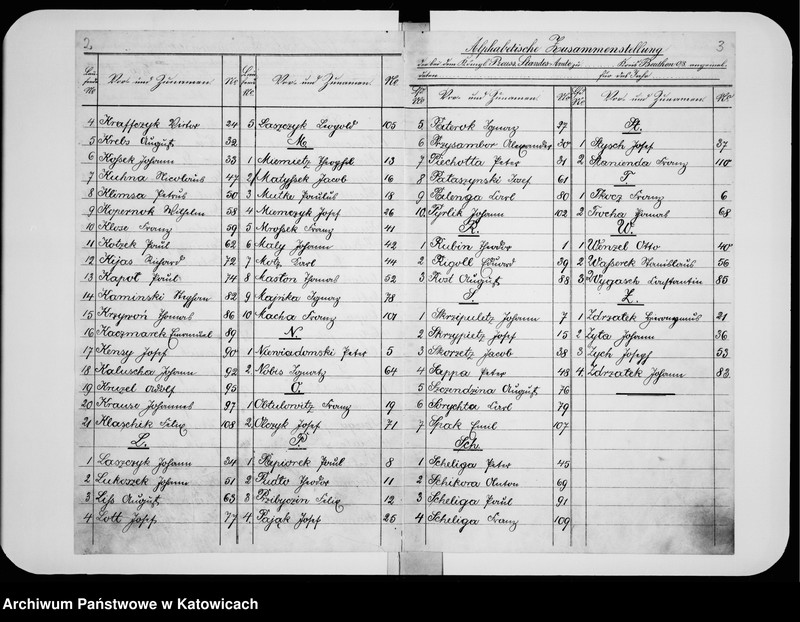 2
Laufende No
Vor- und Zunamen.
No
Laufende No
Vor- und Zunamen.
No
4 Kraffczyk Victor 24
5 Krebs August 32
6 Kossek Johann 33
7 Kuhna Nicolaus 47
8 Klimsa Petrus 50
9 Kopernok Wilhelm 58
10 Klose Franz 59
11 Kotzek Paul 62
12 Kijas Richard 72
13 Kapol Paul 74
14 Kaminski Stephan 82
15 Krzyron Thomas 86
16 Kaczmarek Emanuel 89
17 Kensy Josef 90
18 Kaluscha Johann 92
19 Kruzel Adolf 95
20 Krause Johannes 97
21 Klaschik Felix 108
L.
1 Laszczyk Johann 34
2 Lukoszek Johann 51
3 Liss August 63
4 Lott Josef 77
5 Laszczyk Leopold 105
M.
1 Mumietz Theofil 13
2 Matyssek Jacob 16
3 Mutke Paulus 18
4 Mumczyk Josef 26
5 Mrossek Franz 41
6 Maly Johann 42
7 Motz Carl 44
8 Maston Thomas 52
9 Majnka Ignatz 78
10 Macha Franz 101
N.
1 Niewiadomski Peter 5
2 Nobis Ignatz 64
O.
1 Obtulowitz Franz 19
2 Olczyk Josef 71
P.
1 Piepiorek Paul 8
2 Pudlo Theodor 11
3 Przibyczin Felix 12
4. Pajak Josef 25
Alphabetische Zusammenstellung
3
der bei dem Königl. Preuss. Standes-Amte zu Kreis Beuthen O/S. angemeldeten
für das Jahr
No
Vor- und Zunamen.
No
No
Vor- und Zunamen.
No
5 Paterok Ignatz 27
6 Przysambor Alexander 30
7 Piechotta Peter 31
8 Pataszynski Josef 61
9 Pilenga Carl 80
10. Pyrlik Johann 102
R.
1 Rubin Theodor 1
2 Rigoll Eduard 39
3 Rost August 88
S.
1 Skrzipuletz Johann 7
2 Skrzypietz Josef 15
3 Skorzetz Jacob 38
4 Sappa Peter 48
5 Szczendzina August 76
6 Strychta Carl 79
7 Spak Emil 107
Sch.
1 Scheliga Peter 45
2 Schikora Anton 69
3 Scheliga Paul 91
4 Scheliga Franz 109
St.
1 Stysch Josef 37
2 Stanienda Franz 110
T.
1 Tkocz Franz 6
2 Trocha Thomas 68
W.
1 Wenzel Otto 40
2 Wasserek Stanislaus 56
3 Wygasek Constantin 85
Z.
1 Zdrzatek Hieronymus 21
2 Zyta Johann 36
3 Zych Joseph 53
4 Zdrzatek Johann 83
Archiwum Państwowe w Katowicach